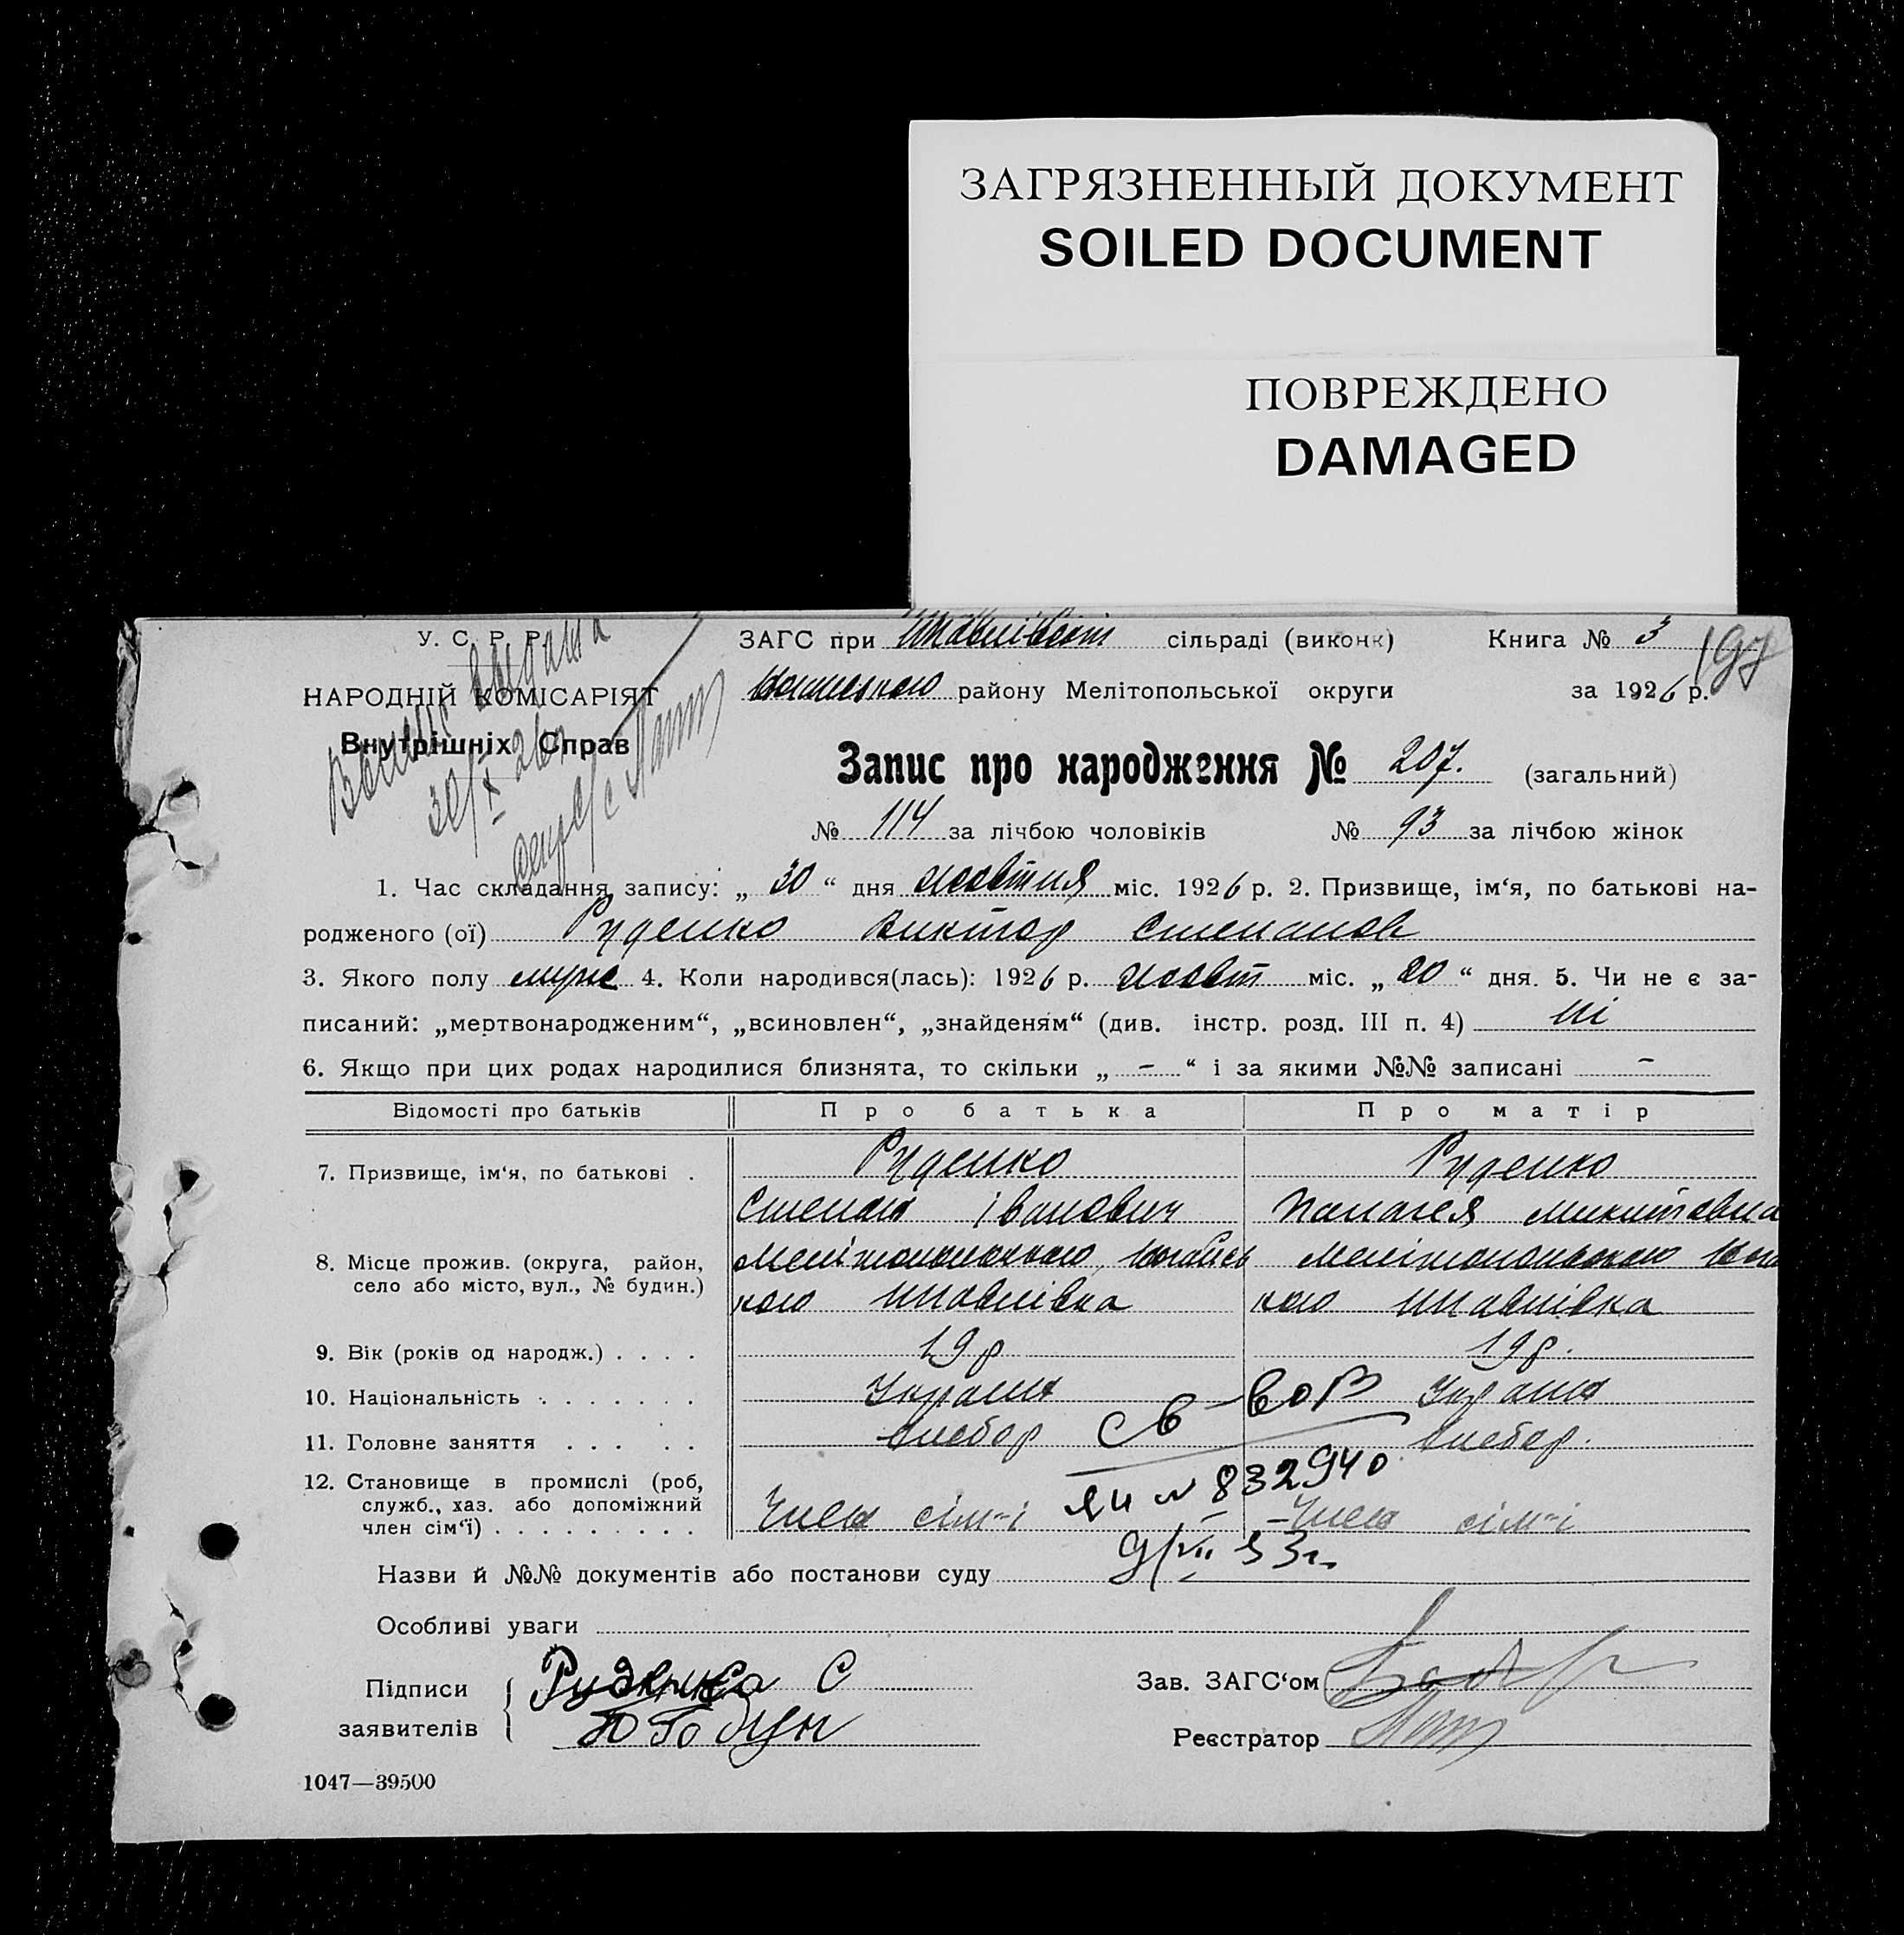 ЗАГРЯЗНЕННЫЙ ДОКУМЕНТ
SOILED DOCUMENT
ПОВРЕЖДЕНО
DAMAGED
У. С. Р. Р.
ЗАГС при сільраді (виконк) Книга № 3
197
НАРОДНІЙ КОМІСАРІЯТ
району Мелітопольської округи за 1926 р.
Внутрішніх Справ
30/X 26
Запис про народження № 207. (загальний)
№ 114 за лічбою чоловіків № 93 за лічбою жінок
1. Час складання запису: „ 30 “ дня жовтня міс. 1926 р. 2. Призвище, ім‘я, по батькові на-
родженого (ої) Руденко Виктор Степанов
3. Якого полу муже 4. Коли народився(лась): 1926 р. жовт міс. „ 20 “ дня. 5. Чи не є за-
писаний: „мертвонародженим“, „всиновлен“, „знайденям“ (див. інстр. розд. III п. 4) ні
6. Якщо при цих родах народилися близнята, то скільки „ - “ і за якими №№ записані -
Відомості про батьків Про батька Про матір
7. Призвище, ім‘я, по батькові . Руденко Руденко
Степан Іванович Пелагея Микитовна
8. Місце прожив. (округа, район,
село або місто, вул., № будин.)
Мелітопольского Мелітопольского
кого Шавлівка кого Шавлівка
9. Вік (років од народж.) . . . . 19 р 19 р.
10. Національність . . . . . . . Україн Україн
11. Головне заняття . . . . . хлебор хлебор.
св-во
12. Становище в промислі (роб,
служб., хаз. або допоміжний
член сім‘ї) . . . . . . . . . Член сім-ї Член сім-ї
ЯЦ № 832940
9/VII 53г.
Назви й №№ документів або постанови суду
Особливі уваги
Підписи
заявителів
Руденко С
Зав. ЗАГС‘ом
Реєстратор
1047—39500